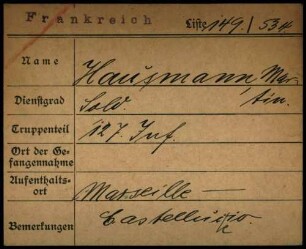 Frankreich Liste 149./534
Name Hausmann, Mar-
Dienstgrad Sold. tin.
Truppenteil 127. Inf.
Ort der Ge-
fangennahme
Aufenthalts-
ort Marseille —
Bemerkungen Castelluzzio.